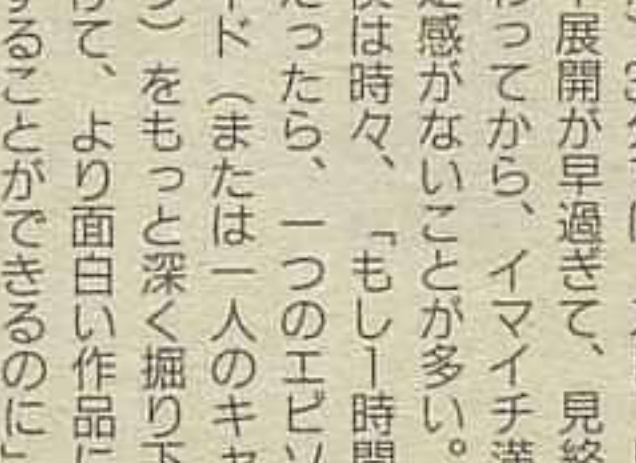 展開が早過ぎて、見終
わってから、イマイチ満
足感がないことが多い。
僕は時々、「もし1時間
だったら、一つのエピソ
ード（または一人のキャ
ラ）をもっと深く掘り下
げて、より面白い作品に
することができるのに」